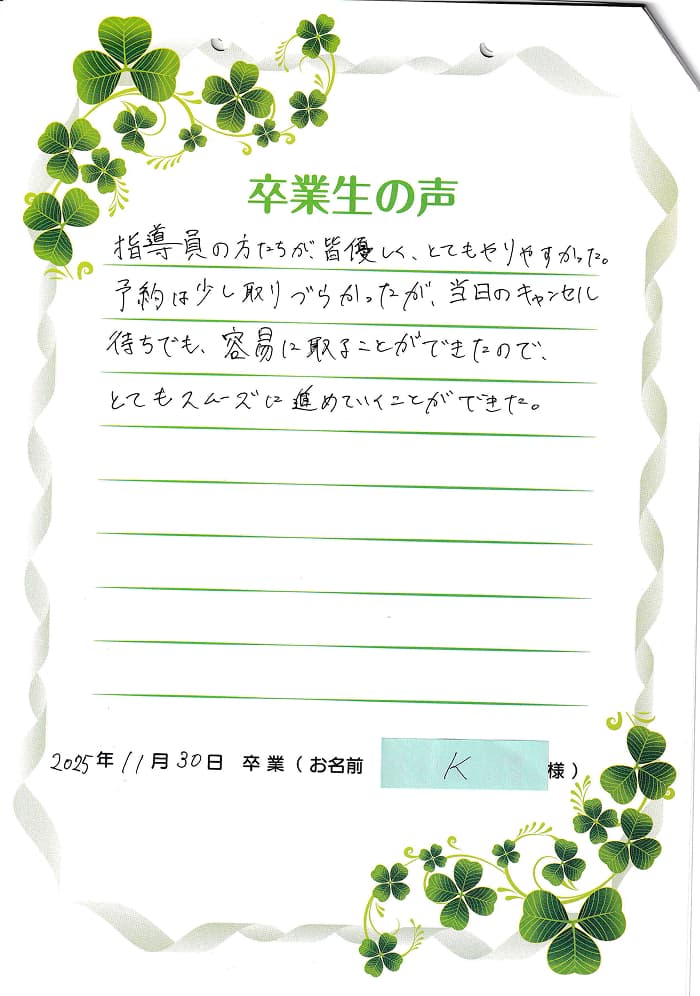 卒業生の声
指導員の方たちが、皆優しく、とてもやりやすかった。
予約は少し取りづらかったが、当日のキャンセル
待ちでも、容易に取ることができたので、
とてもスムーズに進めていくことができた。
2025年 11月 30日 卒業(お名前 K 様)